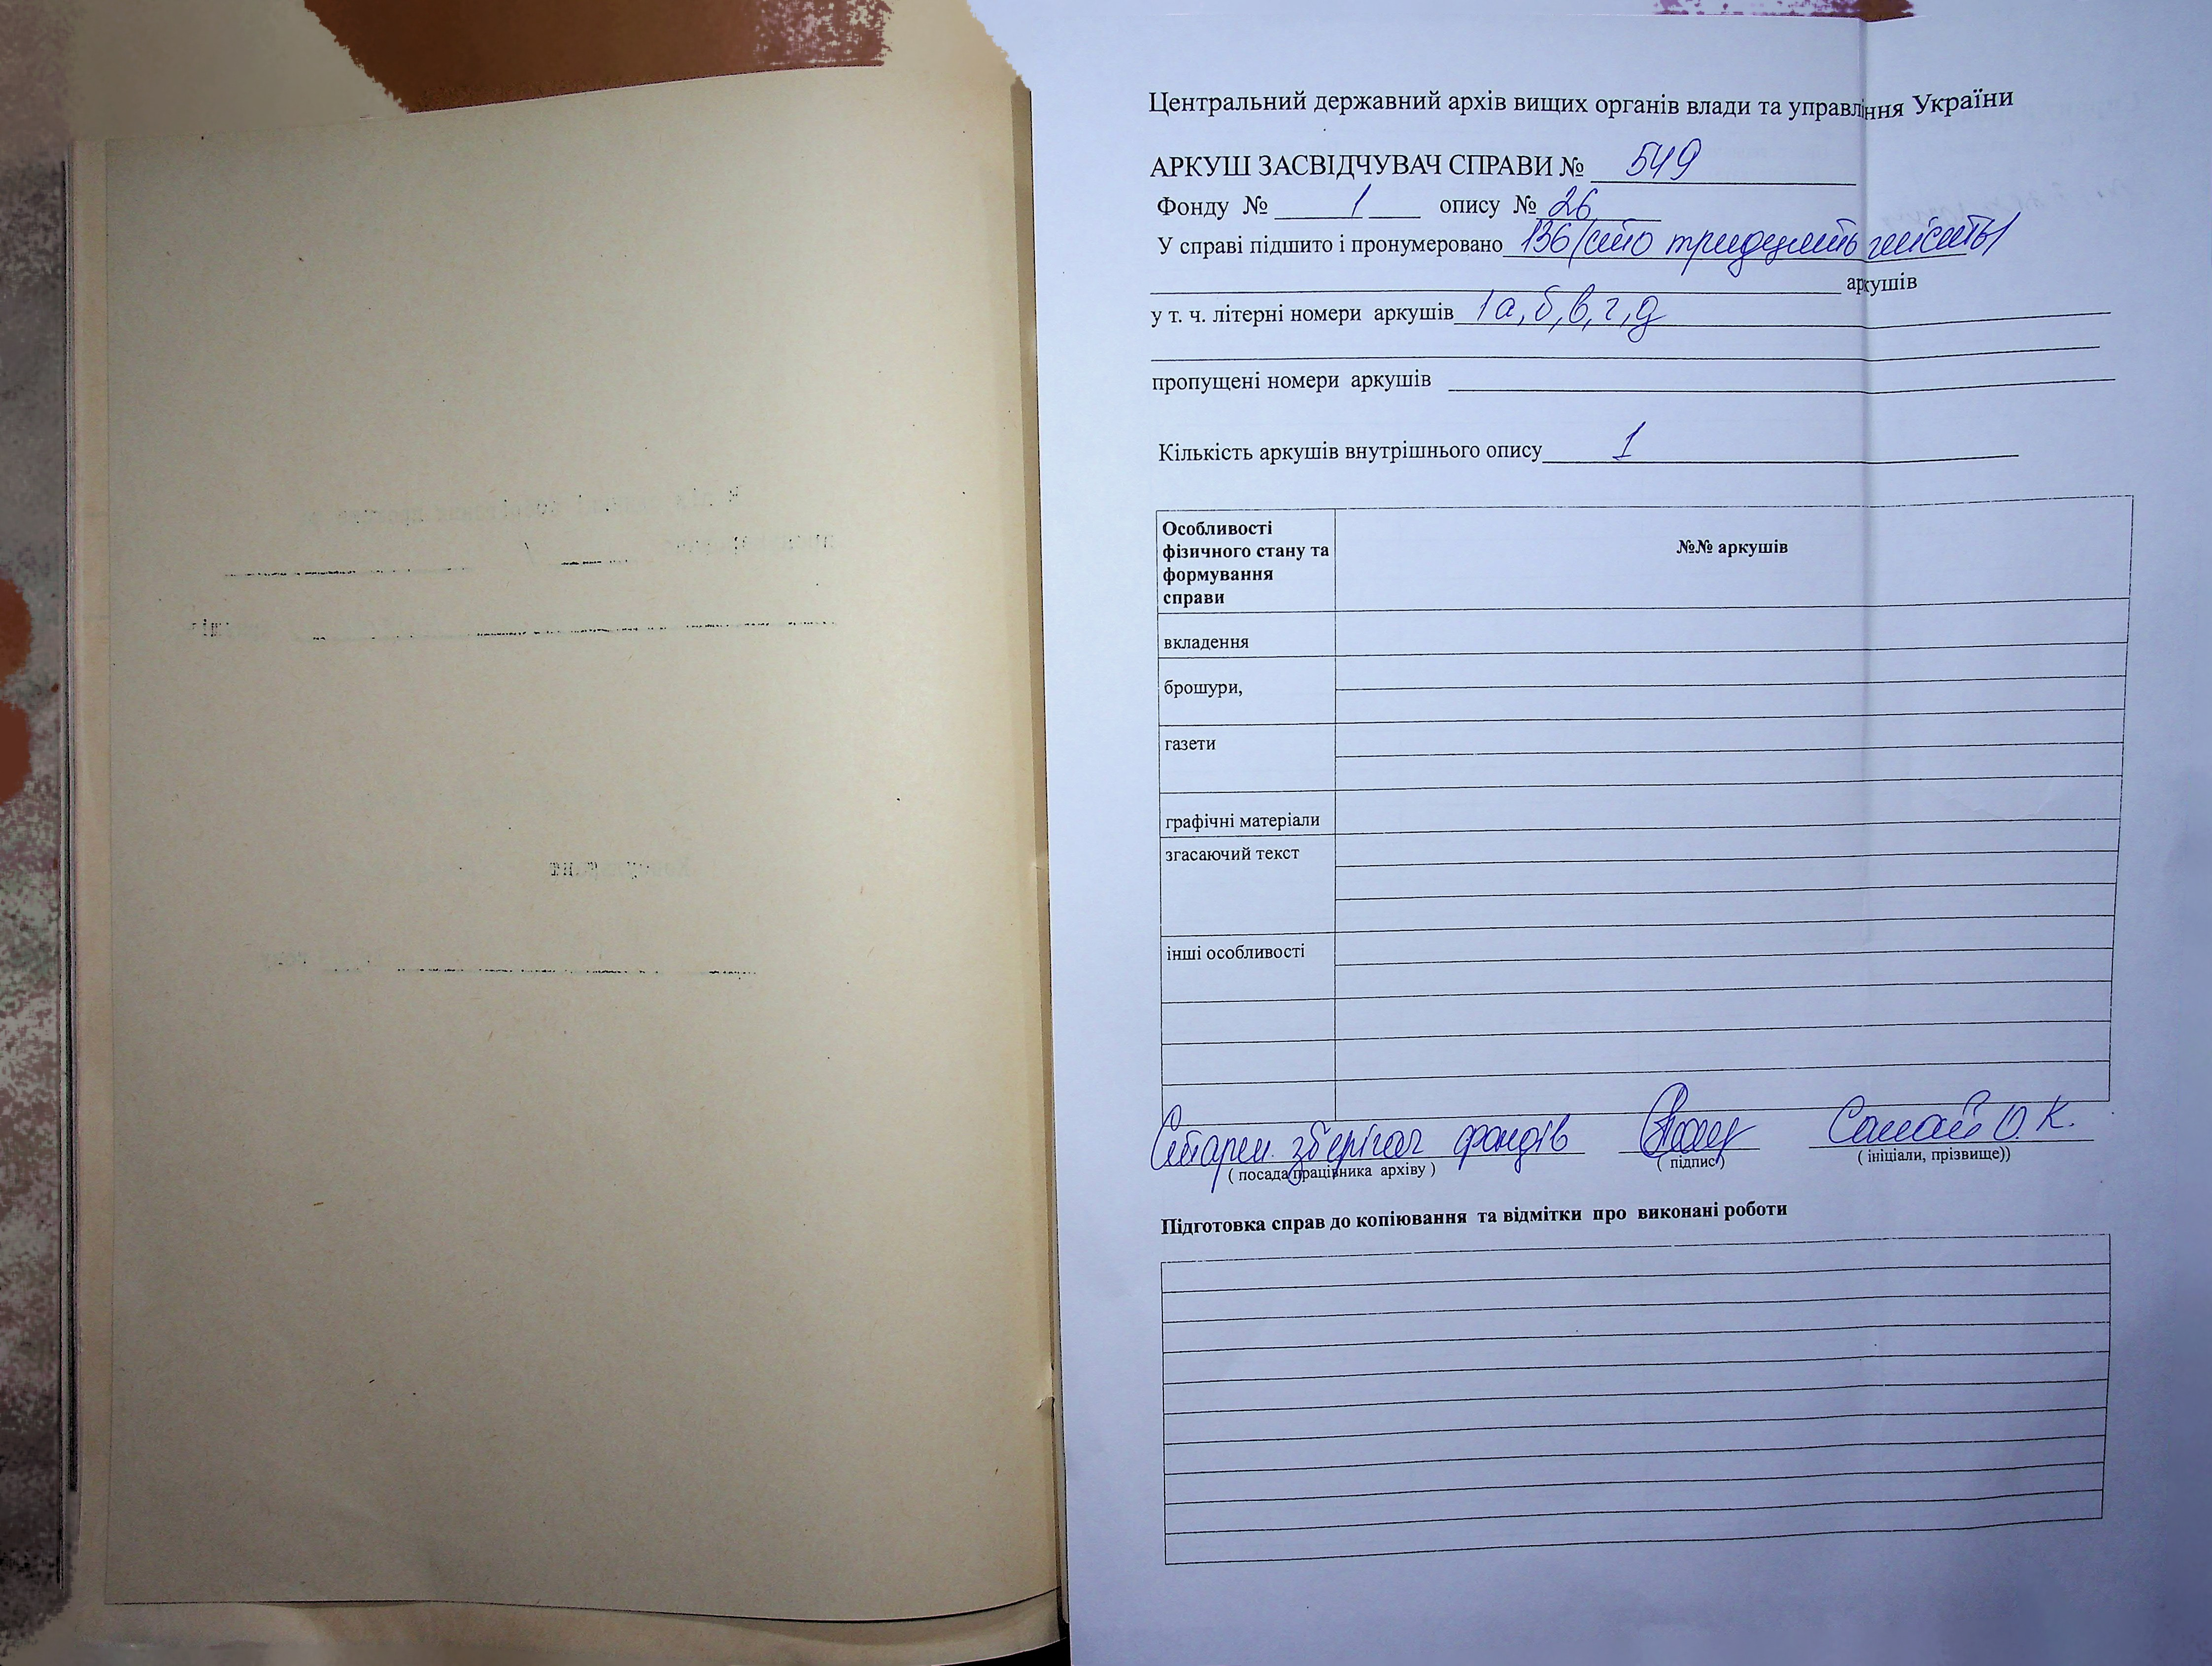 Центральний державний архів вищих органів влади та управління України
АРКУШ ЗАСВІДЧУВАЧ СПРАВИ № 549
Фонду № 1 опису № 26
У справі підшито і пронумеровано 136 (сто тридцять шість)
аркушів
у т. ч. літерні номери аркушів 1а,б,в,г,д
пропущені номери аркушів
Кількість аркушів внутрішнього опису 1
Особливості фізичного стану та формування справи
№№ аркушів
вкладення
брошури,
газети
графічні матеріали
згасаючий текст
інші особливості
Старш. зберігач фондів О. К.
( посада працівника архіву ) ( підпис ) ( ініціали, прізвище))
Підготовка справ до копіювання та відмітки про виконані роботи